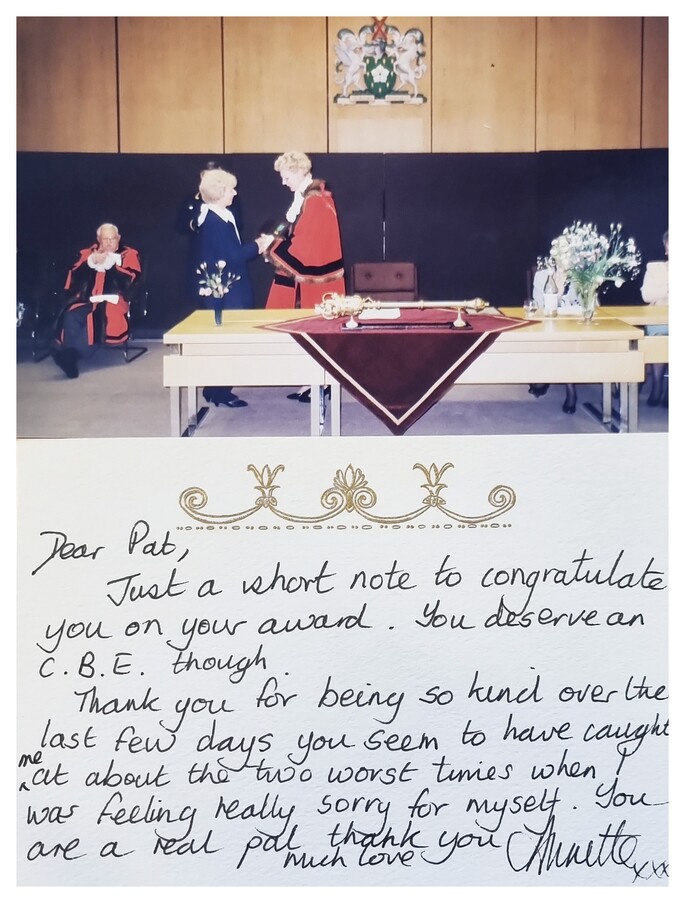 Dear Pat,
Just a short note to congratulate
you on your award. You deserve an
C.B.E. though.
Thank you for being so kind over the
last few days you seem to have caught
me
at about the two worst times when I
was feeling really sorry for myself. You
are a real pal thank you
much love Annette xxx